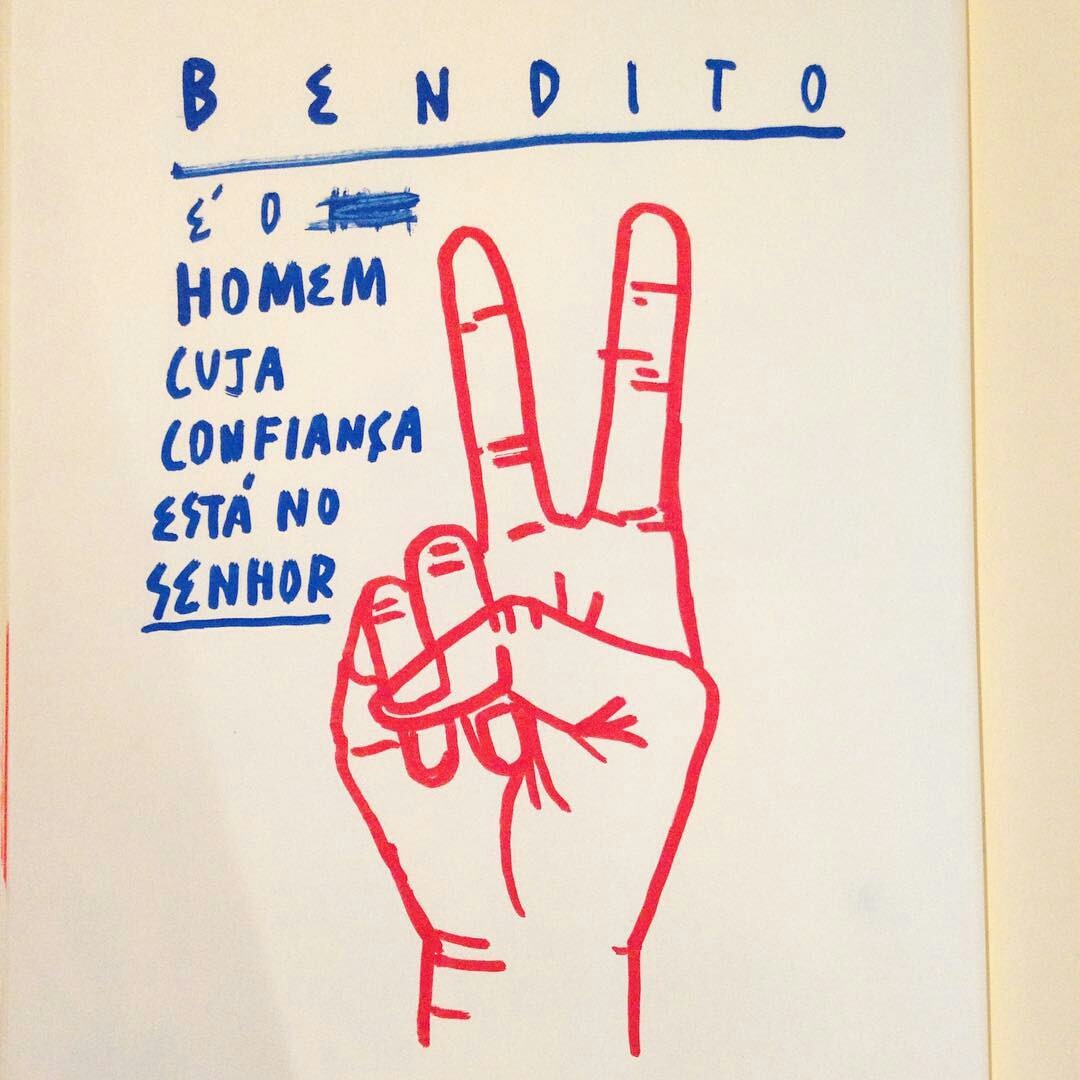 BENDITO
É O
HOMEM
CUJA
CONFIANÇA
ESTÁ NO
SENHOR